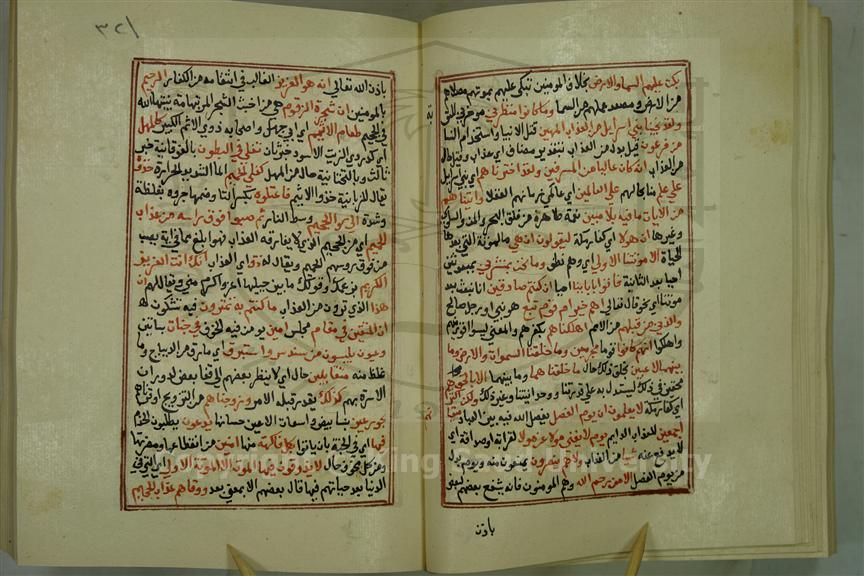 بكت عليهم السماء والارض بخلاف المومنين تبكي عليهم بموتهم مصلاهم
من الارض ومصعد عملهم من السما وما كانوا منظرين موخرين للتوبة
ولقد نجينا بني اسرائيل من العذاب المهين قتل الابنا واستخدام النسا
من فرعون قيل بدل من العذاب بتقدير مضاف اي عذاب وقيل حال
من العذاب انه كان عاليا من المسرفين ولقد اخترناهم اي بني اسرائيل
على علم منا بحالهم على العالمين اي عالمي زمانهم العقلا واتيناهم
من الايات ما فيه بلا مبين نعمة ظاهرة من فلق البحر والمن والسلوى
وغيرها ان هولا اي كفار مكة ليقولون ان هي ما الموتة التي بعدها
الحياة الا موتتنا الاولى اي وهم نطف وما نحن بمنشرين بمبعوثين
احيا بعد الثانية فاتوا بابائنا احيا ان كنتم صادقين انا نبعث بعد
موتتنا اي نحيا قال تعالى اهم خير ام قوم تبع هو نبي او رجل صالح
والذين من قبلهم من الامم اهلكناهم بكفرهم والمعنى ليسوا اقوى منهم
واهلكوا انهم كانوا قوما مجرمين وما خلقنا السموات والارض وما
بينهما لاعبين بخلق ذلك حال ما خلقناهما وما بينهما الا بالحق اي
محقين في ذلك ليستدل به على قدرتنا ووحدانيتنا وغير ذلك ولكن اكثرهم
اي كفار مكة لا يعلمون ان يوم الفصل يفصل الله فيه بين العباد ميقاتهم
اجمعين للعذاب الدايم يوم لا يغني مولى عن مولى لقرابة او صداقة اي
لا يدفع عنه شيا من العذاب ولا هم ينصرون يمنعون منه ويوم بدل
من يوم الفصل الا من رحم الله وهم المومنون فانه يشفع بعضهم لبعض
باذن
٣٢١
باذن الله تعالى انه هو العزيز الغالب في انتقامه من الكفار الرحيم
بالمومنين ان شجرة الزقوم هي من اخبث الشجر المر بتهامة ينبتها الله
في الجحيم طعام الاثيم اي ابي جهل واصحابه ذوي الاثم الكبير كالمهل
اي كدردي الزيت الاسود خبر ثان تغلي في البطون بالفوقانية خبر
ثالث وبالتحتانية حال من المهل كغلي الحميم الما الشديد الحرارة خذوه
يقال للزبانية خذوا الاثيم فاعتلوه بكسر التا وضمها جروه بغلظة
وشدة الى سوا الجحيم وسط النار ثم صبوا فوق راسه من عذاب
الحميم اي من الحميم الذي لا يفارقه العذاب فهو ابلغ مما في اية يصب
من فوق روسهم الحميم ويقال له ذق اي العذاب انك انت العزيز
الكريم بزعمك وقولك ما بين جبليها اعز واكرم مني ويقال لهم ان
هذا الذي ترون من العذاب ما كنتم به تمترون فيه تشكون
ان المتقين في مقام مجلس امين يومن فيه الخوف في جنات بساتين
وعيون يلبسون من سندس واستبرق اي ما رق من الديباج وما
غلظ منه متقابلين حال اي لا ينظر بعضهم الى قفا بعض لدوران
الاسرة بهم كذلك يقدر قبله الامر وزوجناهم من التزويج او قرناهم
بحور عين بنسا بيض واسعات الاعين حسانها يدعون يطلبون الخدم
فيها اي في الجنة بان ياتوا بكل فاكهة منها امنين من انقطاعها ومضرتها
ومن كل مخوف حال لا يذوقون فيها الموت الا الموتة الاولى اي التي في
الدنيا بعد حياتهم فيها قال بعضهم الا بمعنى بعد ووقاهم عذاب الجحيم
King Saud University